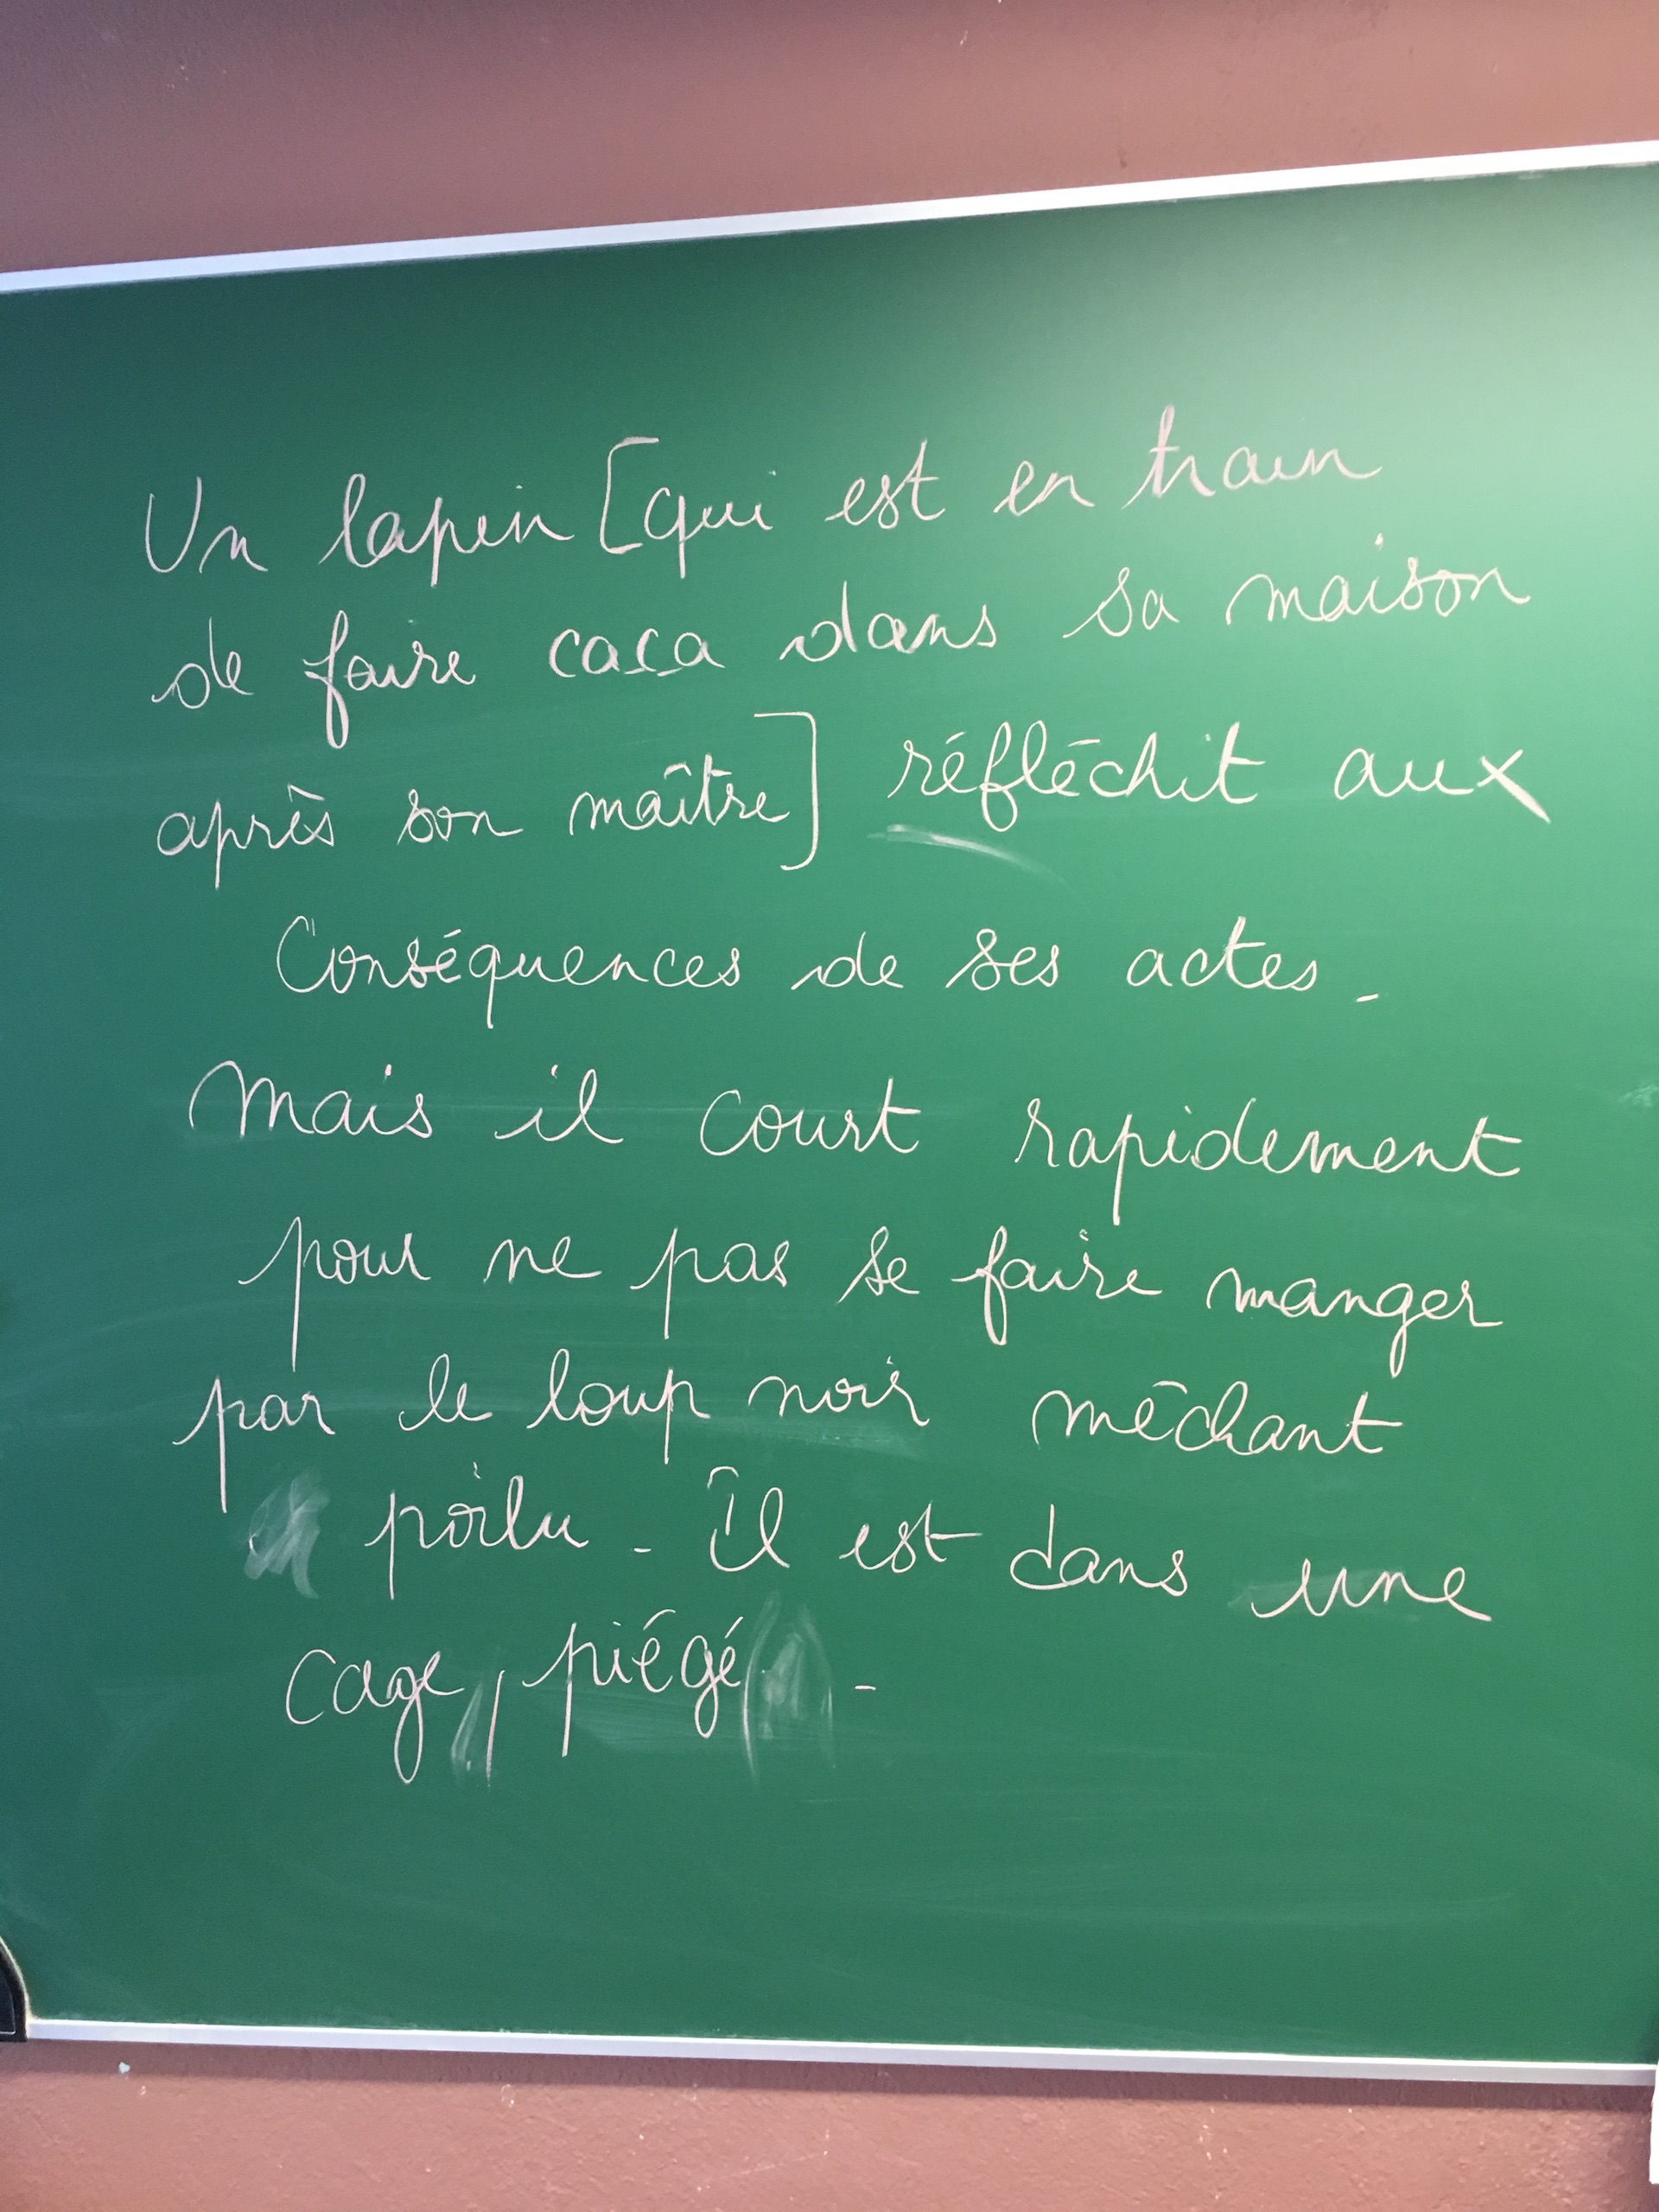 Un lapin [qui est en train
de faire caca dans sa maison
après son maître] réfléchit aux
Conséquences de ses actes.
Mais il court rapidement
pour ne pas se faire manger
par le loup noir méchant
poilu. Il est dans une
cage, piégé.